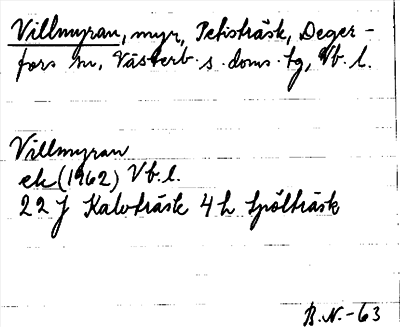 Villmyran, myr, Petisträsk, Deger-
fors sn, Västerb. s. doms. tg, Vb. l.
Villmyran
ek (1962) Vb. l.
22 J Kalvträsk 4 h Spölträsk
B.N.-63